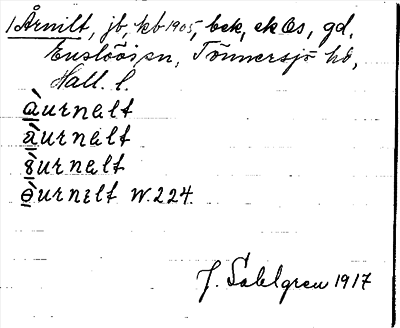 1 Årnilt, jb, kb 1905, bek, ek Os, gd,
Enslöös sn, Tönnersjö hd,
Hall. l.
àurnalt
àurnalt
urnalt
urnɛlt W. 224.
J. Sahlgren 1917